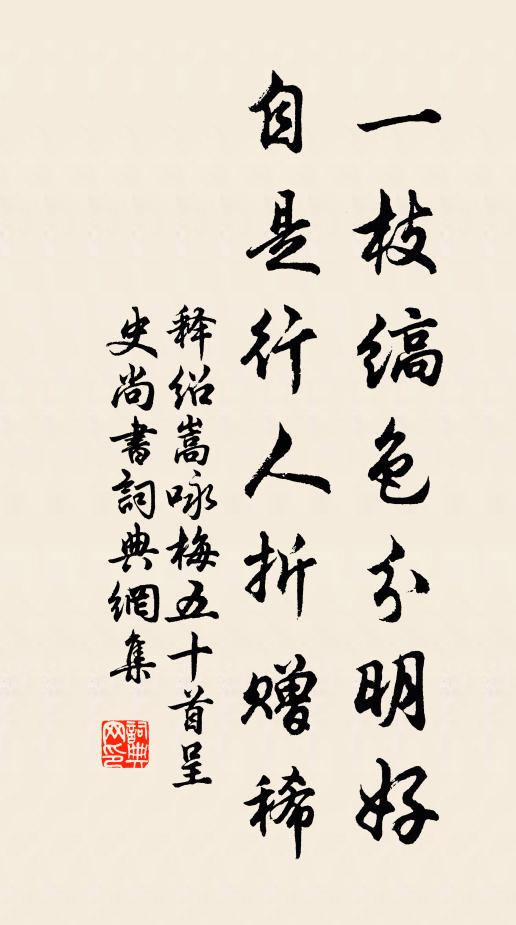 一枝缟色分明好
自是行人折赠稀
释绍嵩咏梅五十首呈
史尚書詞典網集
詞典网印